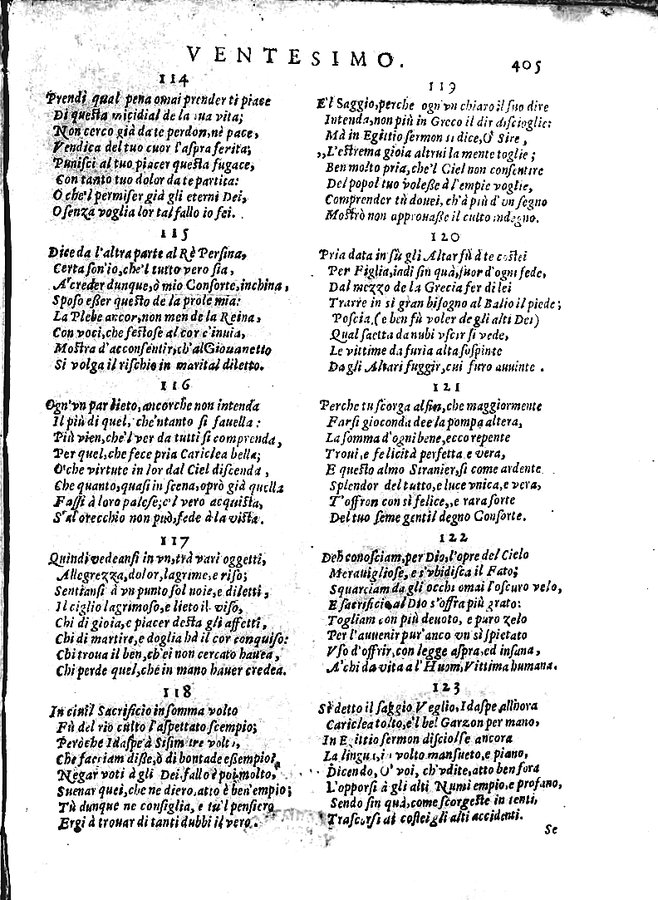 VENTESIMO.
405
114
Prendi qual pena omai prender ti piace
Di questa micidial de la sua vita;
Non cerco già da te perdon, nè pace,
Vendica del tuo cuor l'aspra ferita;
Punisci al tuo piacer questa fugace,
Con tanto tuo dolor da te partita:
O che'l permiser già gli eterni Dei,
O senza voglia lor tal fallo io fei.
115
Dice da l'altra parte al Rè Persina,
Certa son'io, che'l tutto vero sia,
A' creder dunque, ò mio Consorte, inchina,
Sposo eßer questo de la prole mia:
La Plebe ancor, non men de la Reina,
Con voci, che festose al cor c'inuia,
Mostra d'acconsentir, ch'al Giouanetto
Si volga il rischio in marital diletto.
116
Ogn'vn par lieto, ancorche non intenda
Il più di quel, che'ntanto si fauella:
Più vien, che'l ver da tutti si comprenda,
Per quel, che fece pria Cariclea bella;
O' che virtute in lor dal Ciel discenda,
Che quanto, quasi in scena, oprò già quella
Faßi à loro palese; e'l vero acquista,
S'al orecchio non può, fede à la vista.
117
Quindi vedeansi in vn, trà vari oggetti,
Allegrezza, dolor, lagrime, e riso;
Sentiansi à vn punto sol noie, e diletti,
Il ciglio lagrimoso, e lieto il viso,
Chi di gioia, e piacer desta gli affetti,
Chi di martire, e doglia hà il cor conquiso:
Chi troua il ben, ch'ei non cercato hauea,
Chi perde quel, che in mano hauer credea.
118
In ciuil Sacrificio in somma volto
Fù del rio culto l'aspettato scempio;
Peròche Idaspe à Sisimitre volto,
Che facciam diße, ò di bontade eßempio?
Negar voti à gli Dei fallo è poi molto,
Suenar quei, che ne diero, atto è ben'empio;
Tù dunque ne consiglia, e tu'l pensiero
Ergi à trouar di tanti dubbi il vero.
119
E'l Saggio, perche ogn'vn chiaro il suo dire
Intenda, non più in Greco il dir discioglie:
Mà in Egittio sermon si dice, O' Sire,
,,L'estrema gioia altrui la mente toglie;
Ben molto pria, che'l Ciel non consentire
Del popol tuo voleße à l'empie voglie,
Comprender tù douei, ch'à più d'un segno
Mostrò non approuaße il culto indegno.
120
Pria data in sù gli Altar fù da te costei
Per Figlia, indi fin quà, fuor d'ogni fede,
Dal mezzo de la Grecia fer di lei
Trarre in sì gran bisogno al Balio il piede;
Poscia, (e ben fù voler de gli alti Dei)
Qual saetta da nubi vscir si vede,
Le vittime da furia alta sospinte
Da gli Altari fuggir, cui furo auuinte.
121
Perche tu scorga alfin, che maggiormente
Farsi gioconda dee la pompa altera,
La somma d'ogni bene, ecco repente
Troui, e felicità perfetta e vera,
E questo almo Stranier, sì come ardente
Splendor del tutto, e luce vnica, e vera,
T'offron con sì felice, e rara sorte
Del tuo seme gentil degno Consorte.
122
Deh conosciam, per Dio, l'opre del Cielo
Merauigliose, e s'vbidisca il Fato;
Squarciam da gli occhi omai l'oscuro velo,
E sacrificio al Dio s'offra più grato:
Togliam con più deuoto, e puro zelo
Per l'auuenir pur'anco vn sì spietato
Vso d'offrir, con legge aspra, ed insana,
A' chi da vita a l'Huom, Vittima humana.
123
Sì detto il saggio Veglio, Idaspe allhora
Cariclea tolto, e'l bel Garzon per mano,
In Egittio sermon disciolse ancora
La lingua, in volto mansueto, e piano,
Dicendo, O' voi, ch'vdite, atto ben fora
L'opporsi à gli alti Numi empio, e profano,
Sendo fin quà, come scorgeste intenti,
Trascorsi di costei gli alti accidenti.
Se